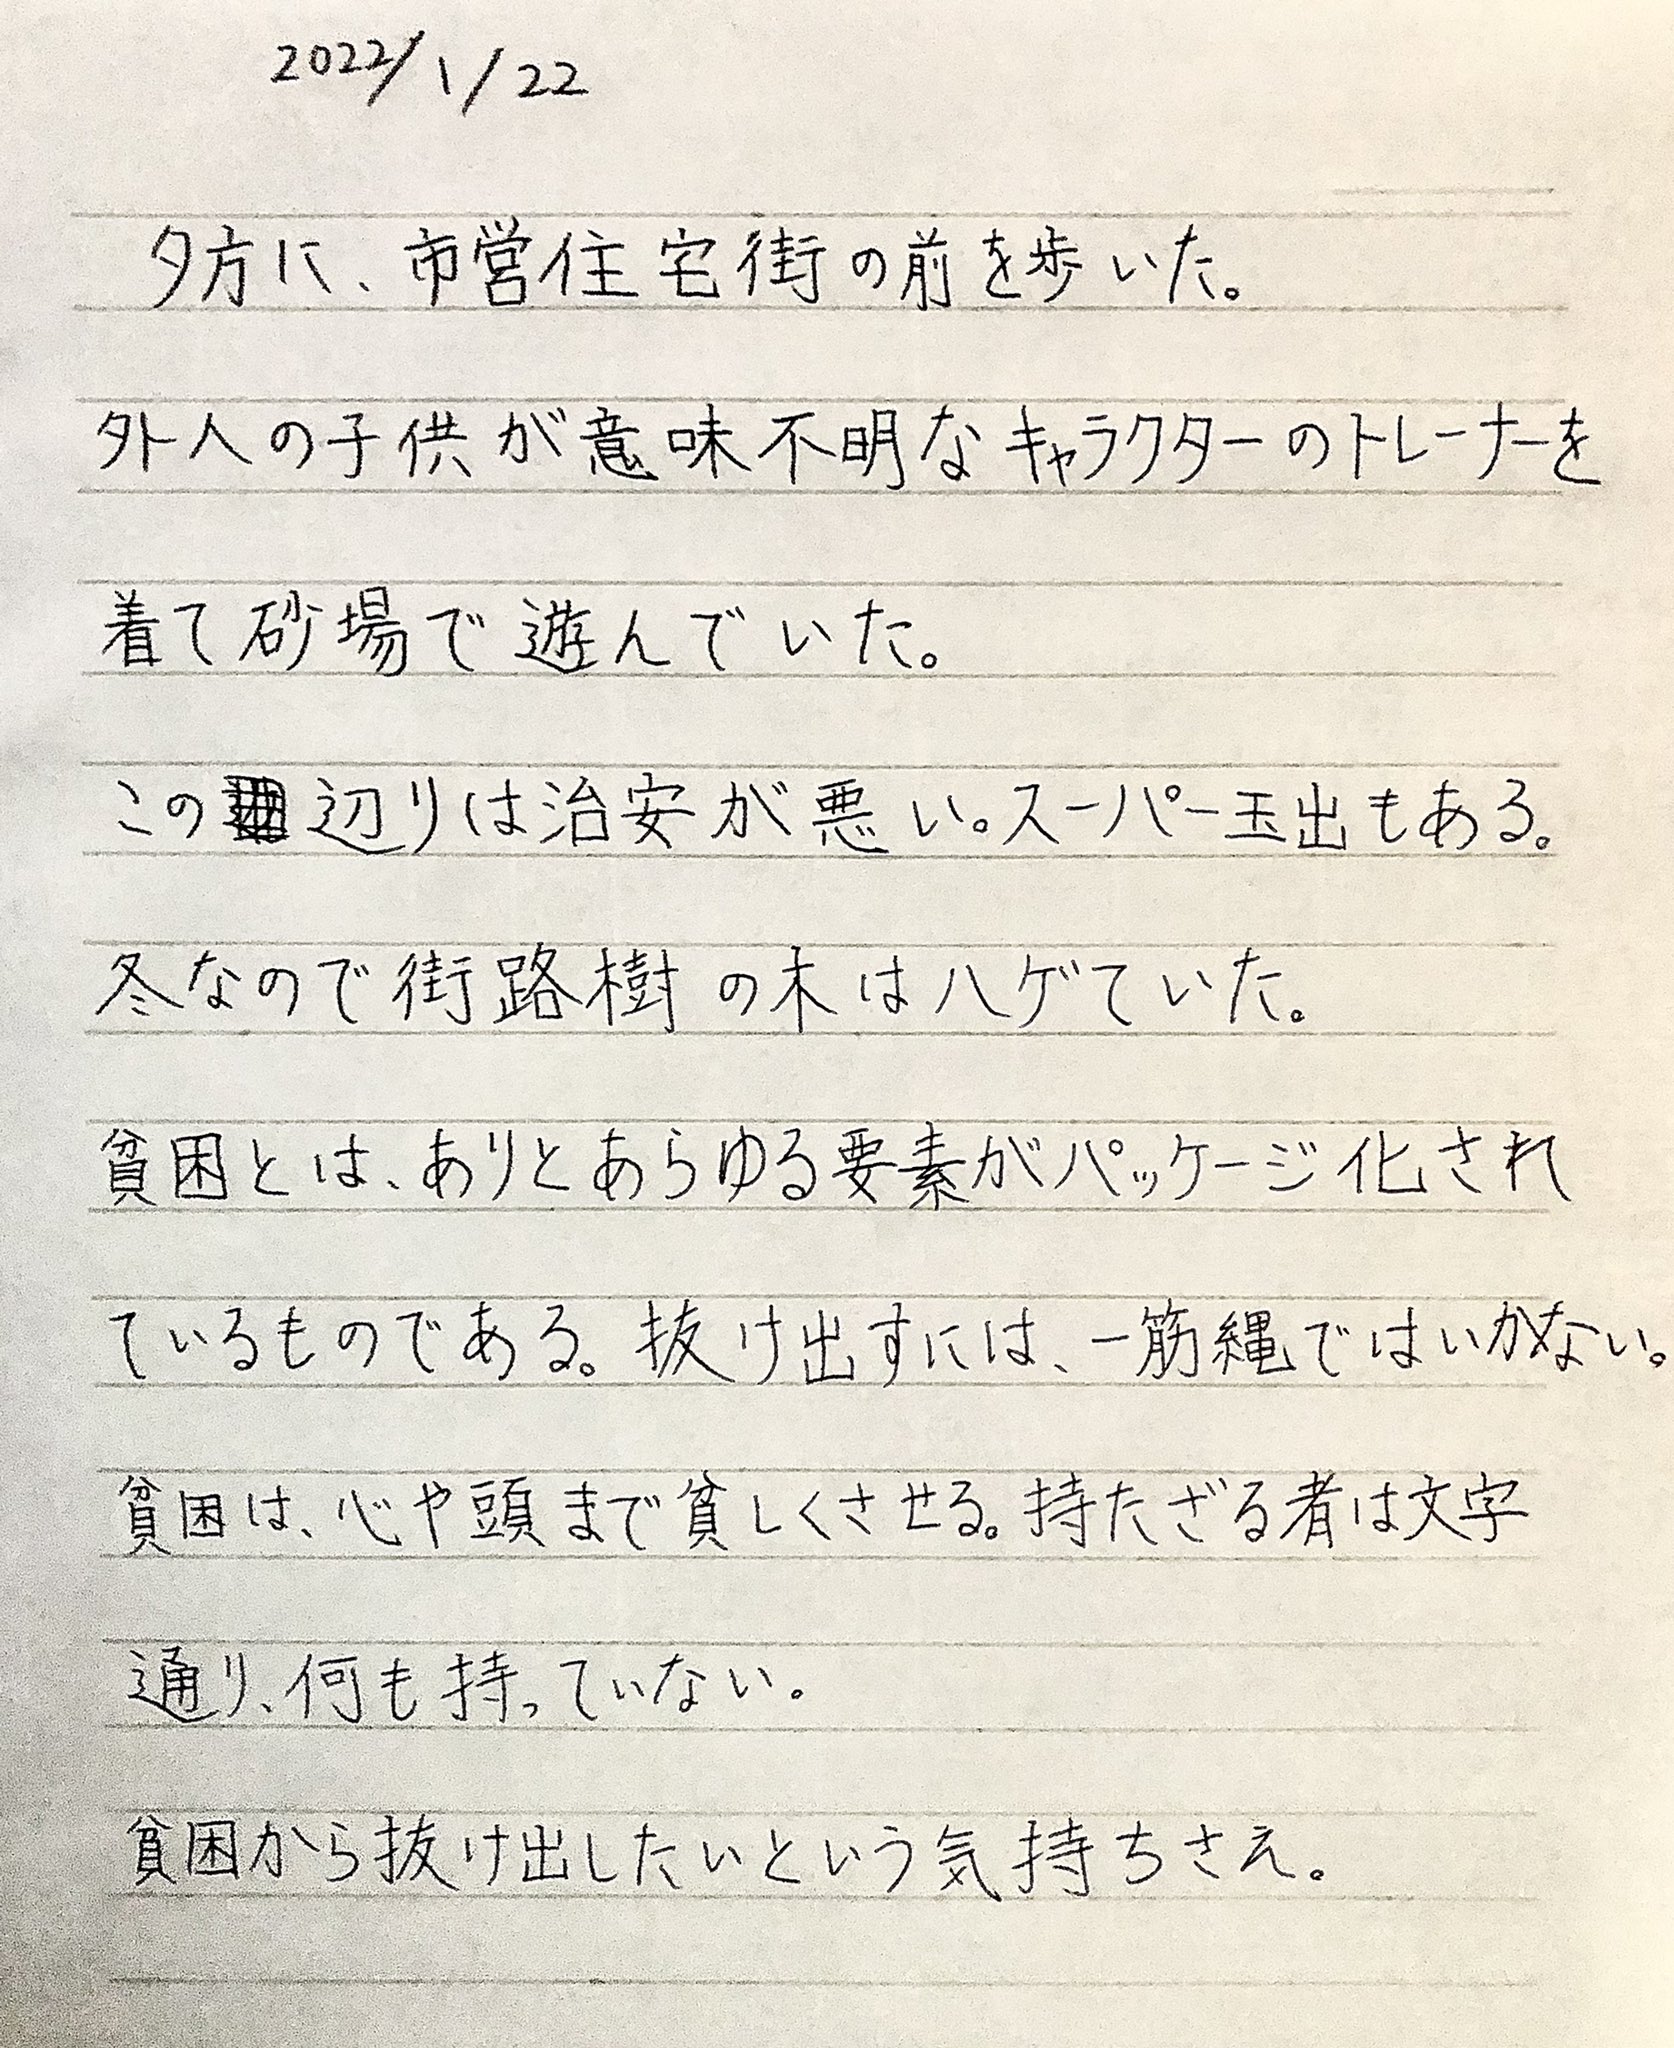 2022/1/22
夕方に、市営住宅街の前を歩いた。
外人の子供が意味不明なキャラクターのトレーナーを
着て砂場で遊んでいた。
この辺りは治安が悪い。スーパー玉出もある。
冬なので街路樹の木はハゲていた。
貧困とは、ありとあらゆる要素がパッケージ化され
ているものである。抜け出すには、一筋縄ではいかない。
貧困は、心や頭まで貧しくさせる。持たざる者は文字
通り、何も持っていない。
貧困から抜け出したいという気持ちさえ。